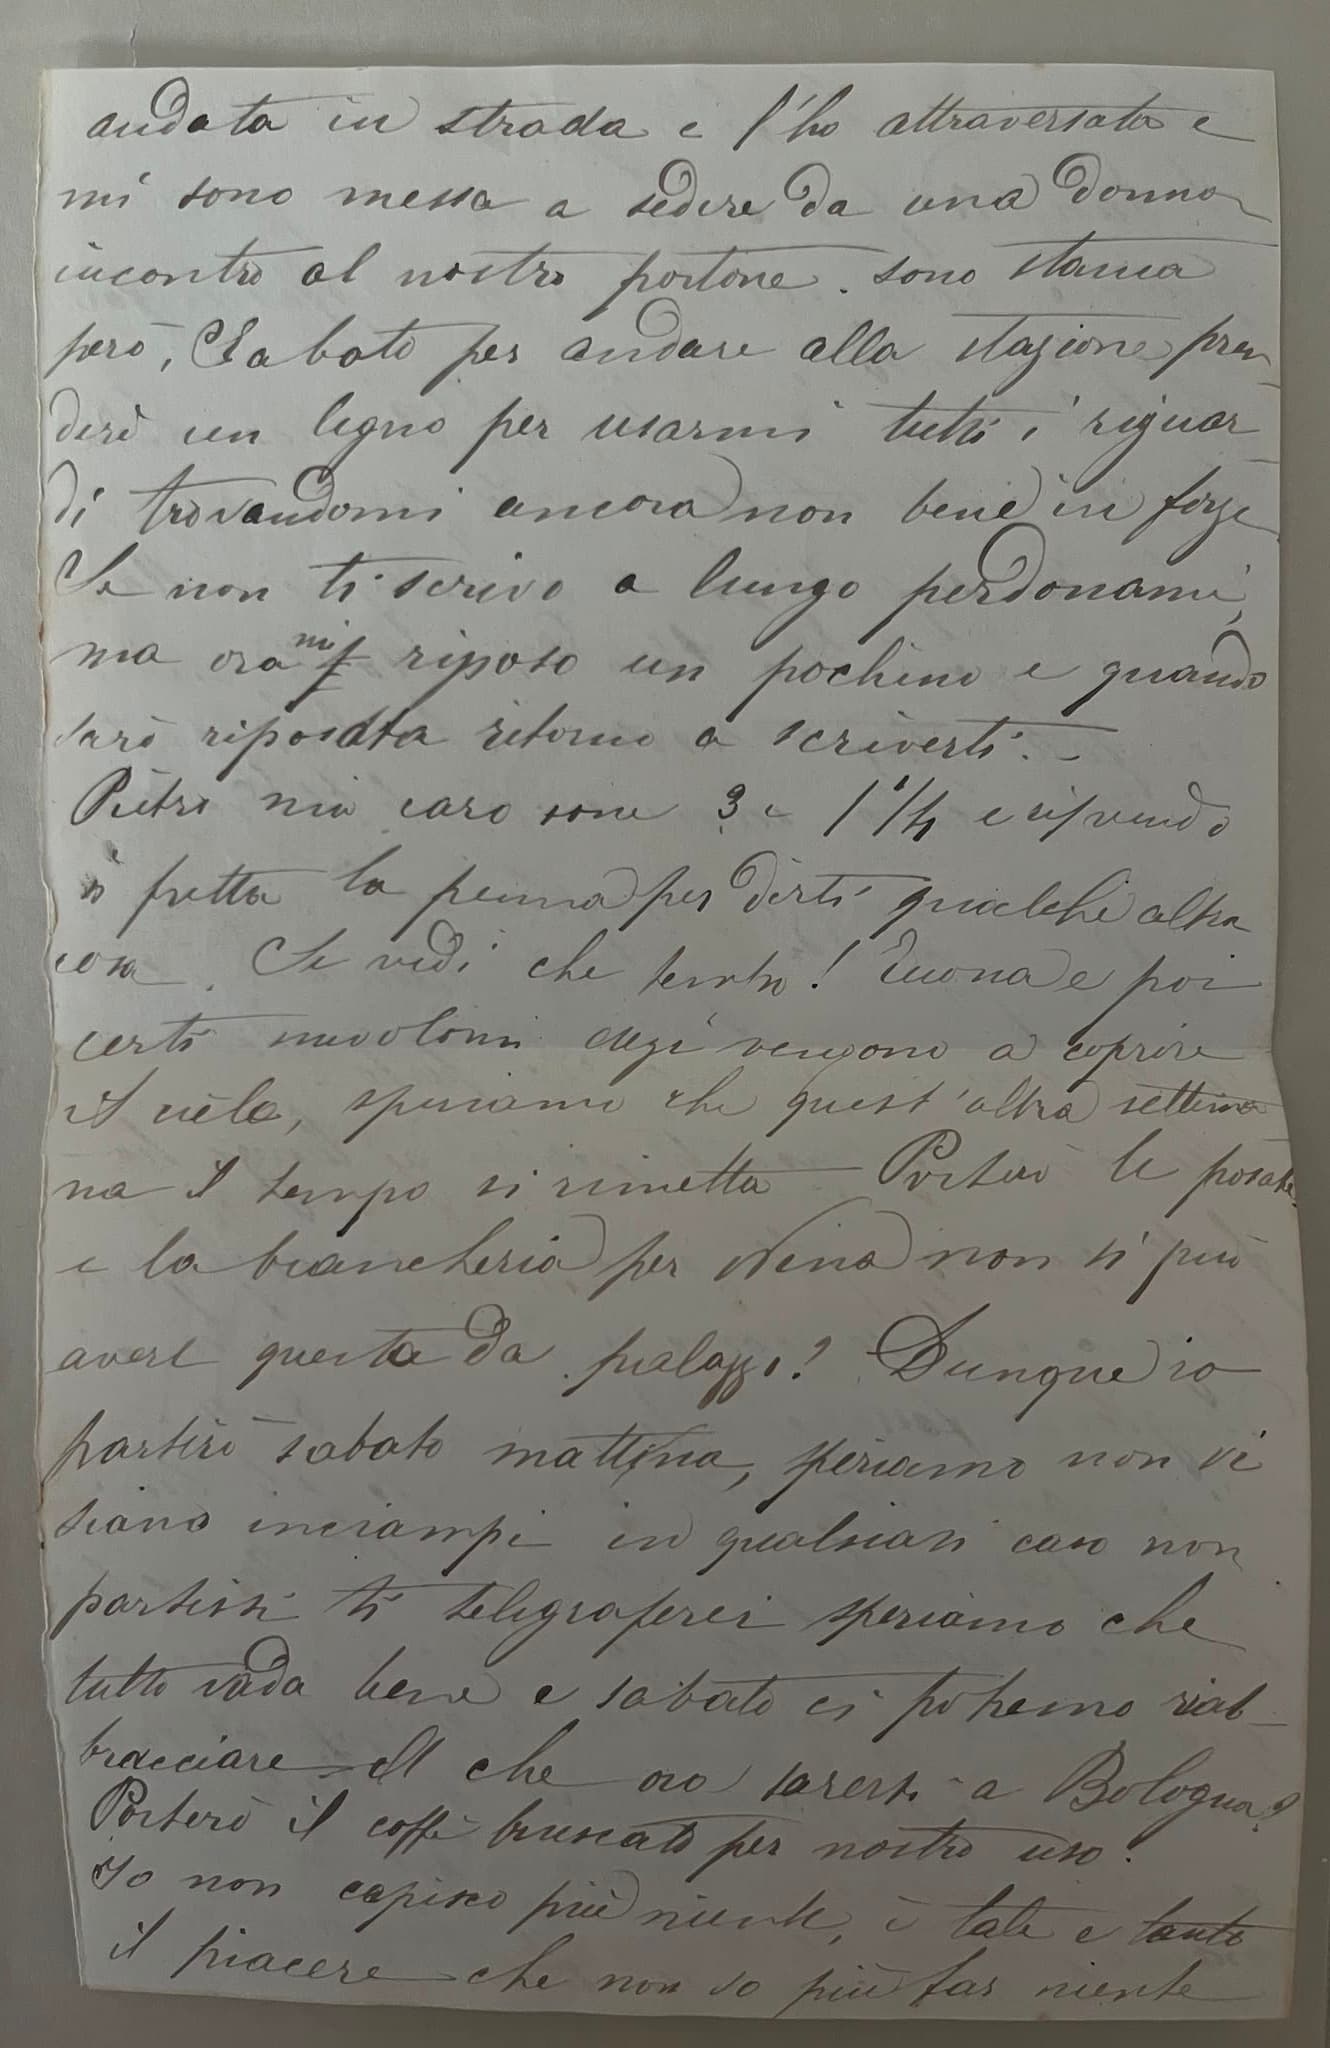 andata in strada e l'ho attraversata e
mi sono messa a sedere da una donna
incontro al nostro portone. sono stanca
però, Sabato per andare alla stazione pren-
derò un legno per usarmi tutti i riguar-
di trovandomi ancora non bene in forze
Se non ti scrivo a lungo perdonami,
ma ora mi riposo un pochino e quando
sarò riposata ritorno a scriverti. -
Pietro mio caro sono 3 e 1 1/4 e riprendo
in fretta la penna per dirti qualche altra
cosa. Se vedi che tempo! Tuona e poi
certi nuvoloni vengono a coprire
il cielo, speriamo che quest'altra settima
na il tempo si rimetta - Porterò le posate,
e la biancheria per Nina non si può
avere questa da palazzo? Dunque io
partirò sabato mattina, speriamo non vi
siano inciampi in qualsiasi caso non
partissi ti telegraferei speriamo che
tutto vada bene e sabato ci potremo riab-
bracciare. Il che ora saresti a Bologna?
Porterò il caffè bruscato per nostro uso.
Io non capisco più niente, è tale e tanto
il piacere che non so più far niente